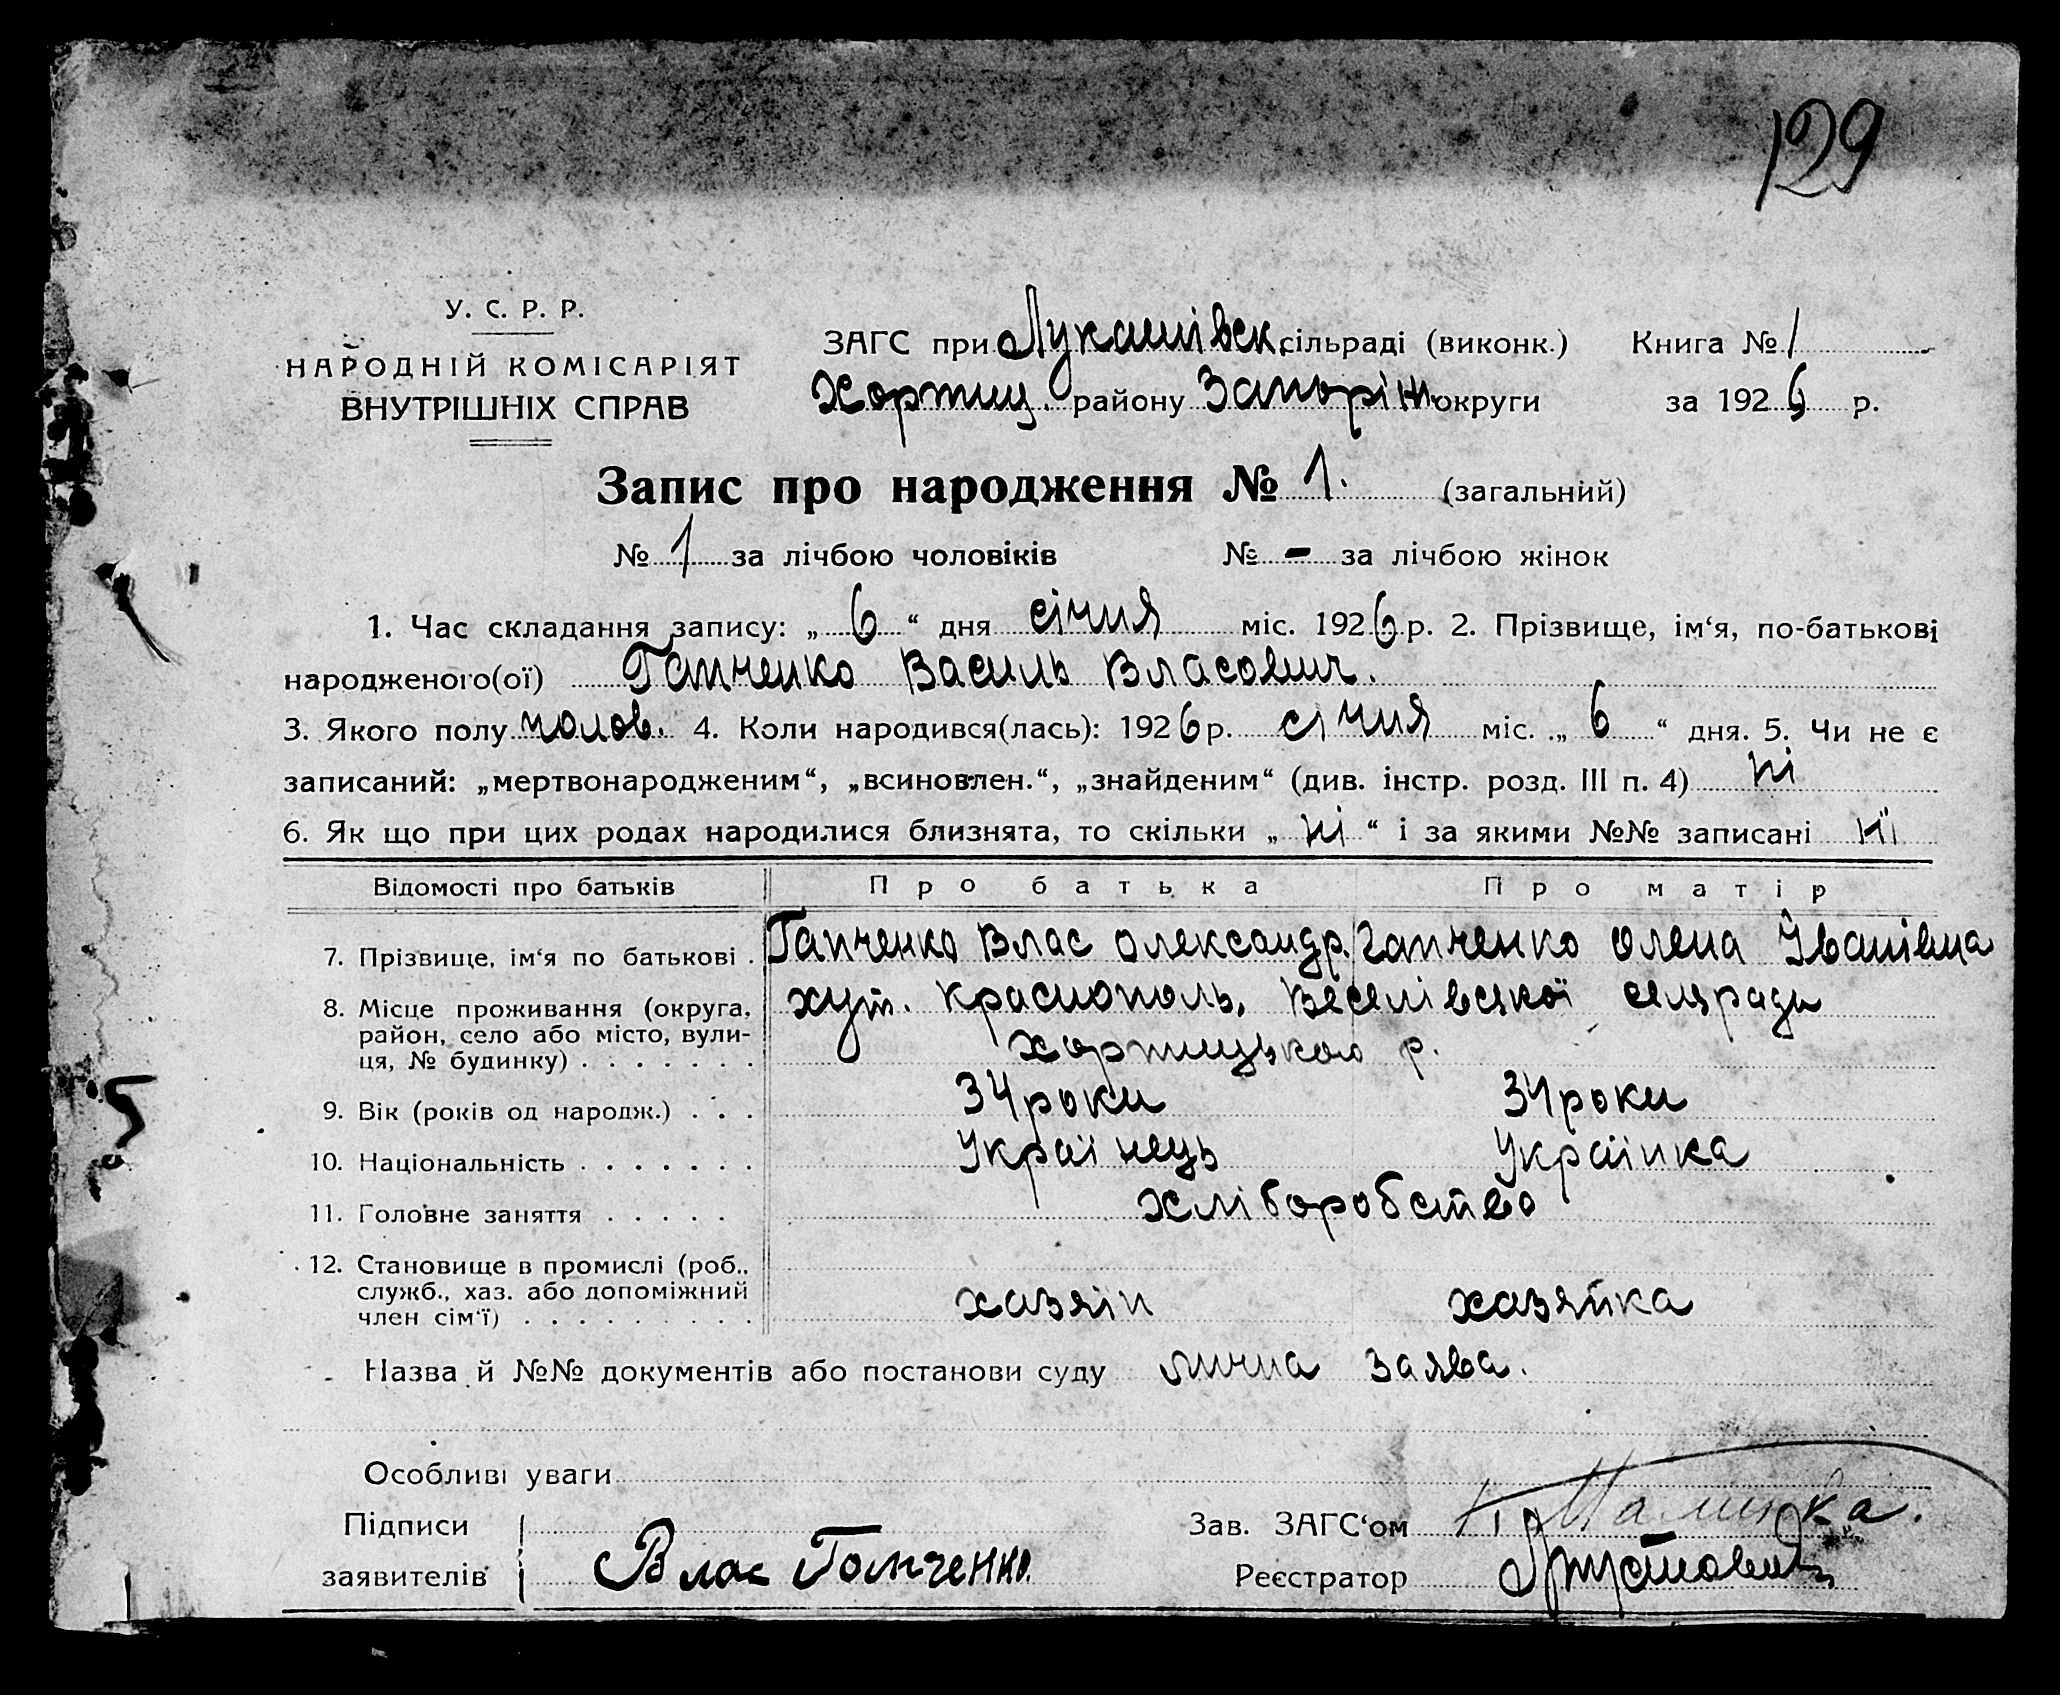 129
У. С. Р. Р.
НАРОДНІЙ КОМІСАРІЯТ
ВНУТРІШНІХ СПРАВ
ЗАГС при Лукашівск. сільраді (виконк.) Книга № 1
Хортиц. району Запоріж. округи за 1926 р.
Запис про народження № 1. (загальний)
№ 1 за лічбою чоловіків № - за лічбою жінок
1. Час складання запису: „ 6 “ дня січня міс. 1926 р. 2. Прізвище, ім‘я, по-батькові
народженого(ої) Гапченко Василь Власович.
3. Якого полу чолов. 4. Коли народився(лась): 1926 р. січня міс. „ 6 “ дня. 5. Чи не є
записаний: „мертвонародженим“, „всиновлен.“, „знайденим“ (див. інстр. розд. III п. 4) ні
6. Як що при цих родах народилися близнята, то скільки „ ні “ і за якими №№ записані ні
Відомості про батьків Про батька Про матір
7. Прізвище, ім‘я по батькові . Гапченко Влас Олександр. Гапченко Олена Іванівна
8. Місце проживання (округа, хут. Краснополь, Веселівської селради
район, село або місто, вули-
ця, № будинку) . . . . . . . Хортицького р.
9. Вік (років од народж.) . . . 34 роки 34 роки
10. Національність . . . . . . . Українець Українка
11. Головне заняття . . . . . хліборобство
12. Становище в промислі (роб.,
служб., хаз. або допоміжний хазяін хазяйка
член сім‘ї) . . . . . . . . .
Назва й №№ документів або постанови суду лична заява.
Особливі уваги
Підписи Зав. ЗАГС‘ом
заявителів Влас Гапченко. Реєстратор
5